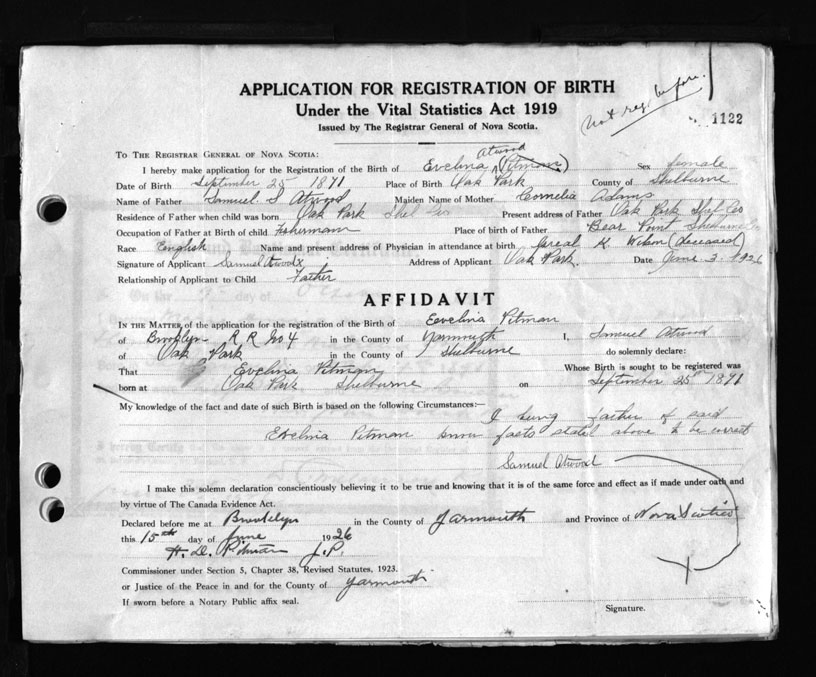 APPLICATION FOR REGISTRATION OF BIRTH
Under the Vital Statistics Act 1919
Issued by The Registrar General of Nova Scotia.
Not reg. before.
1122
TO THE REGISTRAR GENERAL OF NOVA SCOTIA:
Atwood
I hereby make application for the Registration of the Birth of Evelina (Pitman) Sex female
Date of Birth September 25 1871 Place of Birth Oak Park County of Shelburne
Name of Father Samuel S Atwood Maiden Name of Mother Cornelia Adams
Residence of Father when child was born Oak Park Shel Co Present address of Father Oak Park Shel Co
Occupation of Father at Birth of child Fisherman Place of birth of Father Bear Point Shelburne Co
Race English Name and present address of Physician in attendance at birth K. Wilson (deceased)
Signature of Applicant Samuel Atwood x Address of Applicant Oak Park. Date June 3. 1926
Relationship of Applicant to Child Father
AFFIDAVIT
IN THE MATTER of the application for the registration of the Birth of Eevelina Pitman
of Brooklyn R R No 4 in the County of Yarmouth I, Samuel Atwood
of Oak Park in the County of Shelburne do solemnly declare:
That Evelina Pitman Whose Birth is sought to be registered was
born at Oak Park Shelburne on September 25 1871
My knowledge of the fact and date of such Birth is based on the following Circumstances:—
I being father of said
Evelina Pitman know facts stated above to be correct
Samuel Atwood
I make this solemn declaration conscientiously believing it to be true and knowing that it is of the same force and effect as if made under oath and
by virtue of The Canada Evidence Act.
Declared before me at Brooklyn in the County of Yarmouth and Province of Nova Scotia
this 15th day of June 1926
H. D. Pitman J. P.
Commissioner under Section 5, Chapter 38, Revised Statutes, 1923.
or Justice of the Peace in and for the County of Yarmouth
If sworn before a Notary Public affix seal.
Signature.